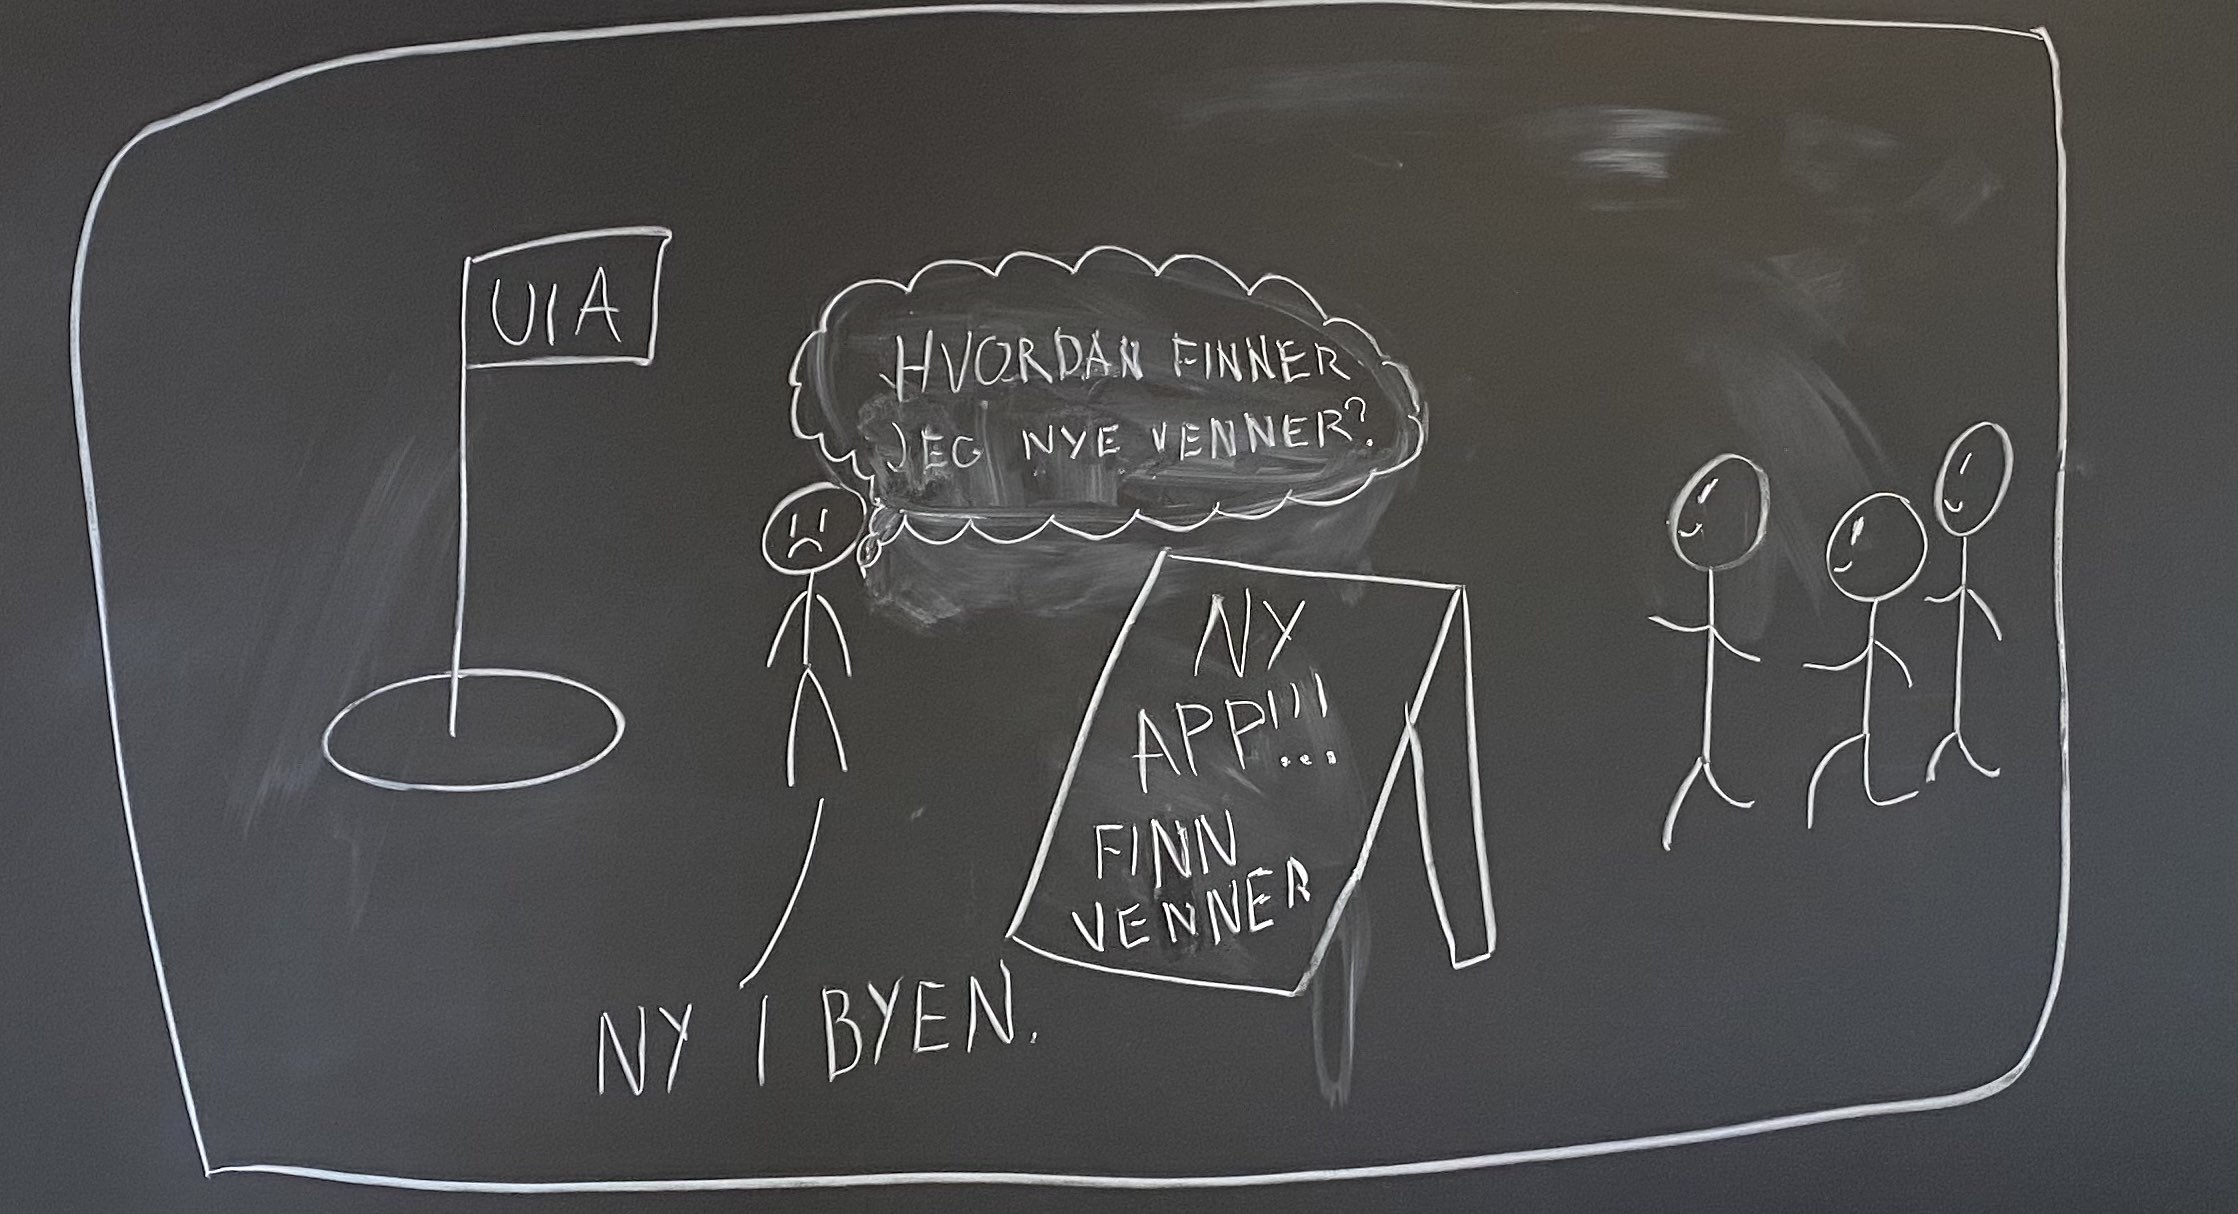 UIA
HVORDAN FINNER
JEG NYE VENNER?
NY
APP!!!
FINN
VENNER
NY I BYEN.